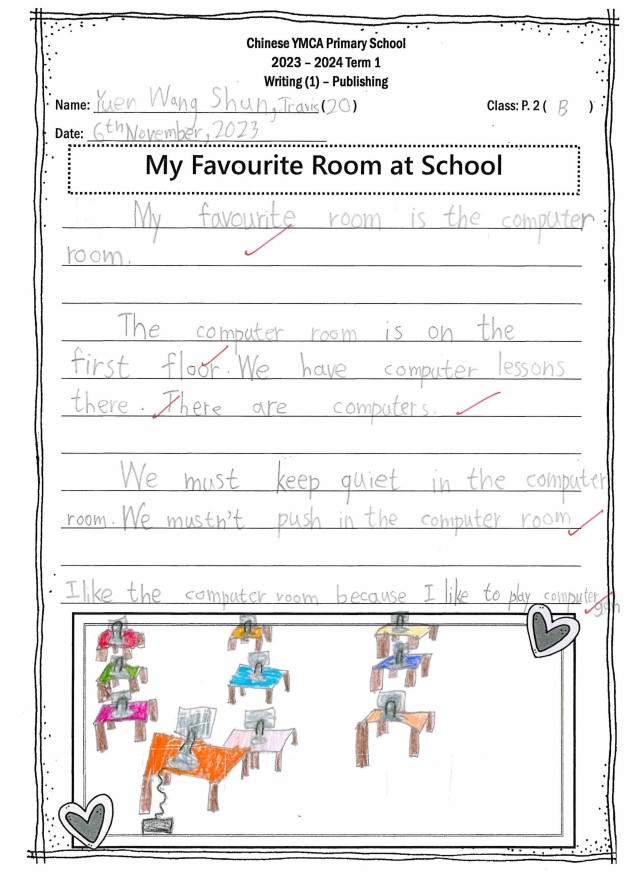 Chinese YMCA Primary School
2023 – 2024 Term 1
Writing (1) – Publishing
Name: Yuen Wang Shun, Travis (20) Class: P. 2 ( B )
Date: 6th November, 2023
My Favourite Room at School
My favourite room is the computer
room.
The computer room is on the
first floor. We have computer lessons
there. There are computers.
We must keep quiet in the computer
room. We mustn't push in the computer room
I like the computer room because I like to play computer